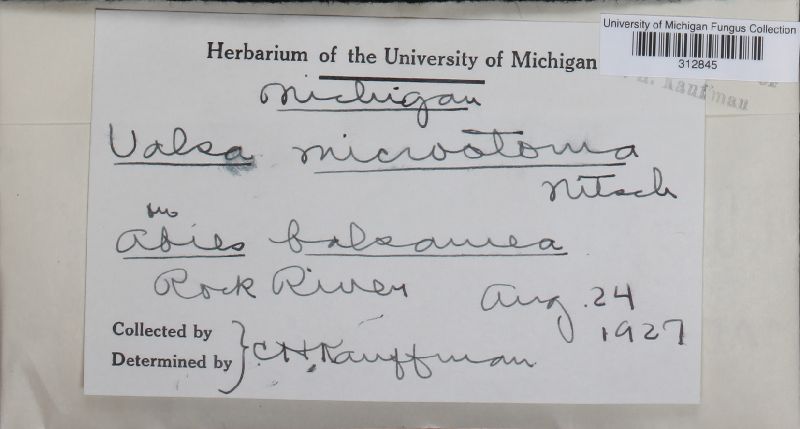 University of Michigan Fungus Collection
312845
Kauffman
Herbarium of the University of Michigan
Michigan
Valsa microstoma
Nitsch
on
Abies balsamea
Rock River Aug. 24
1927
Collected by
Determined by
C.H. Kauffman